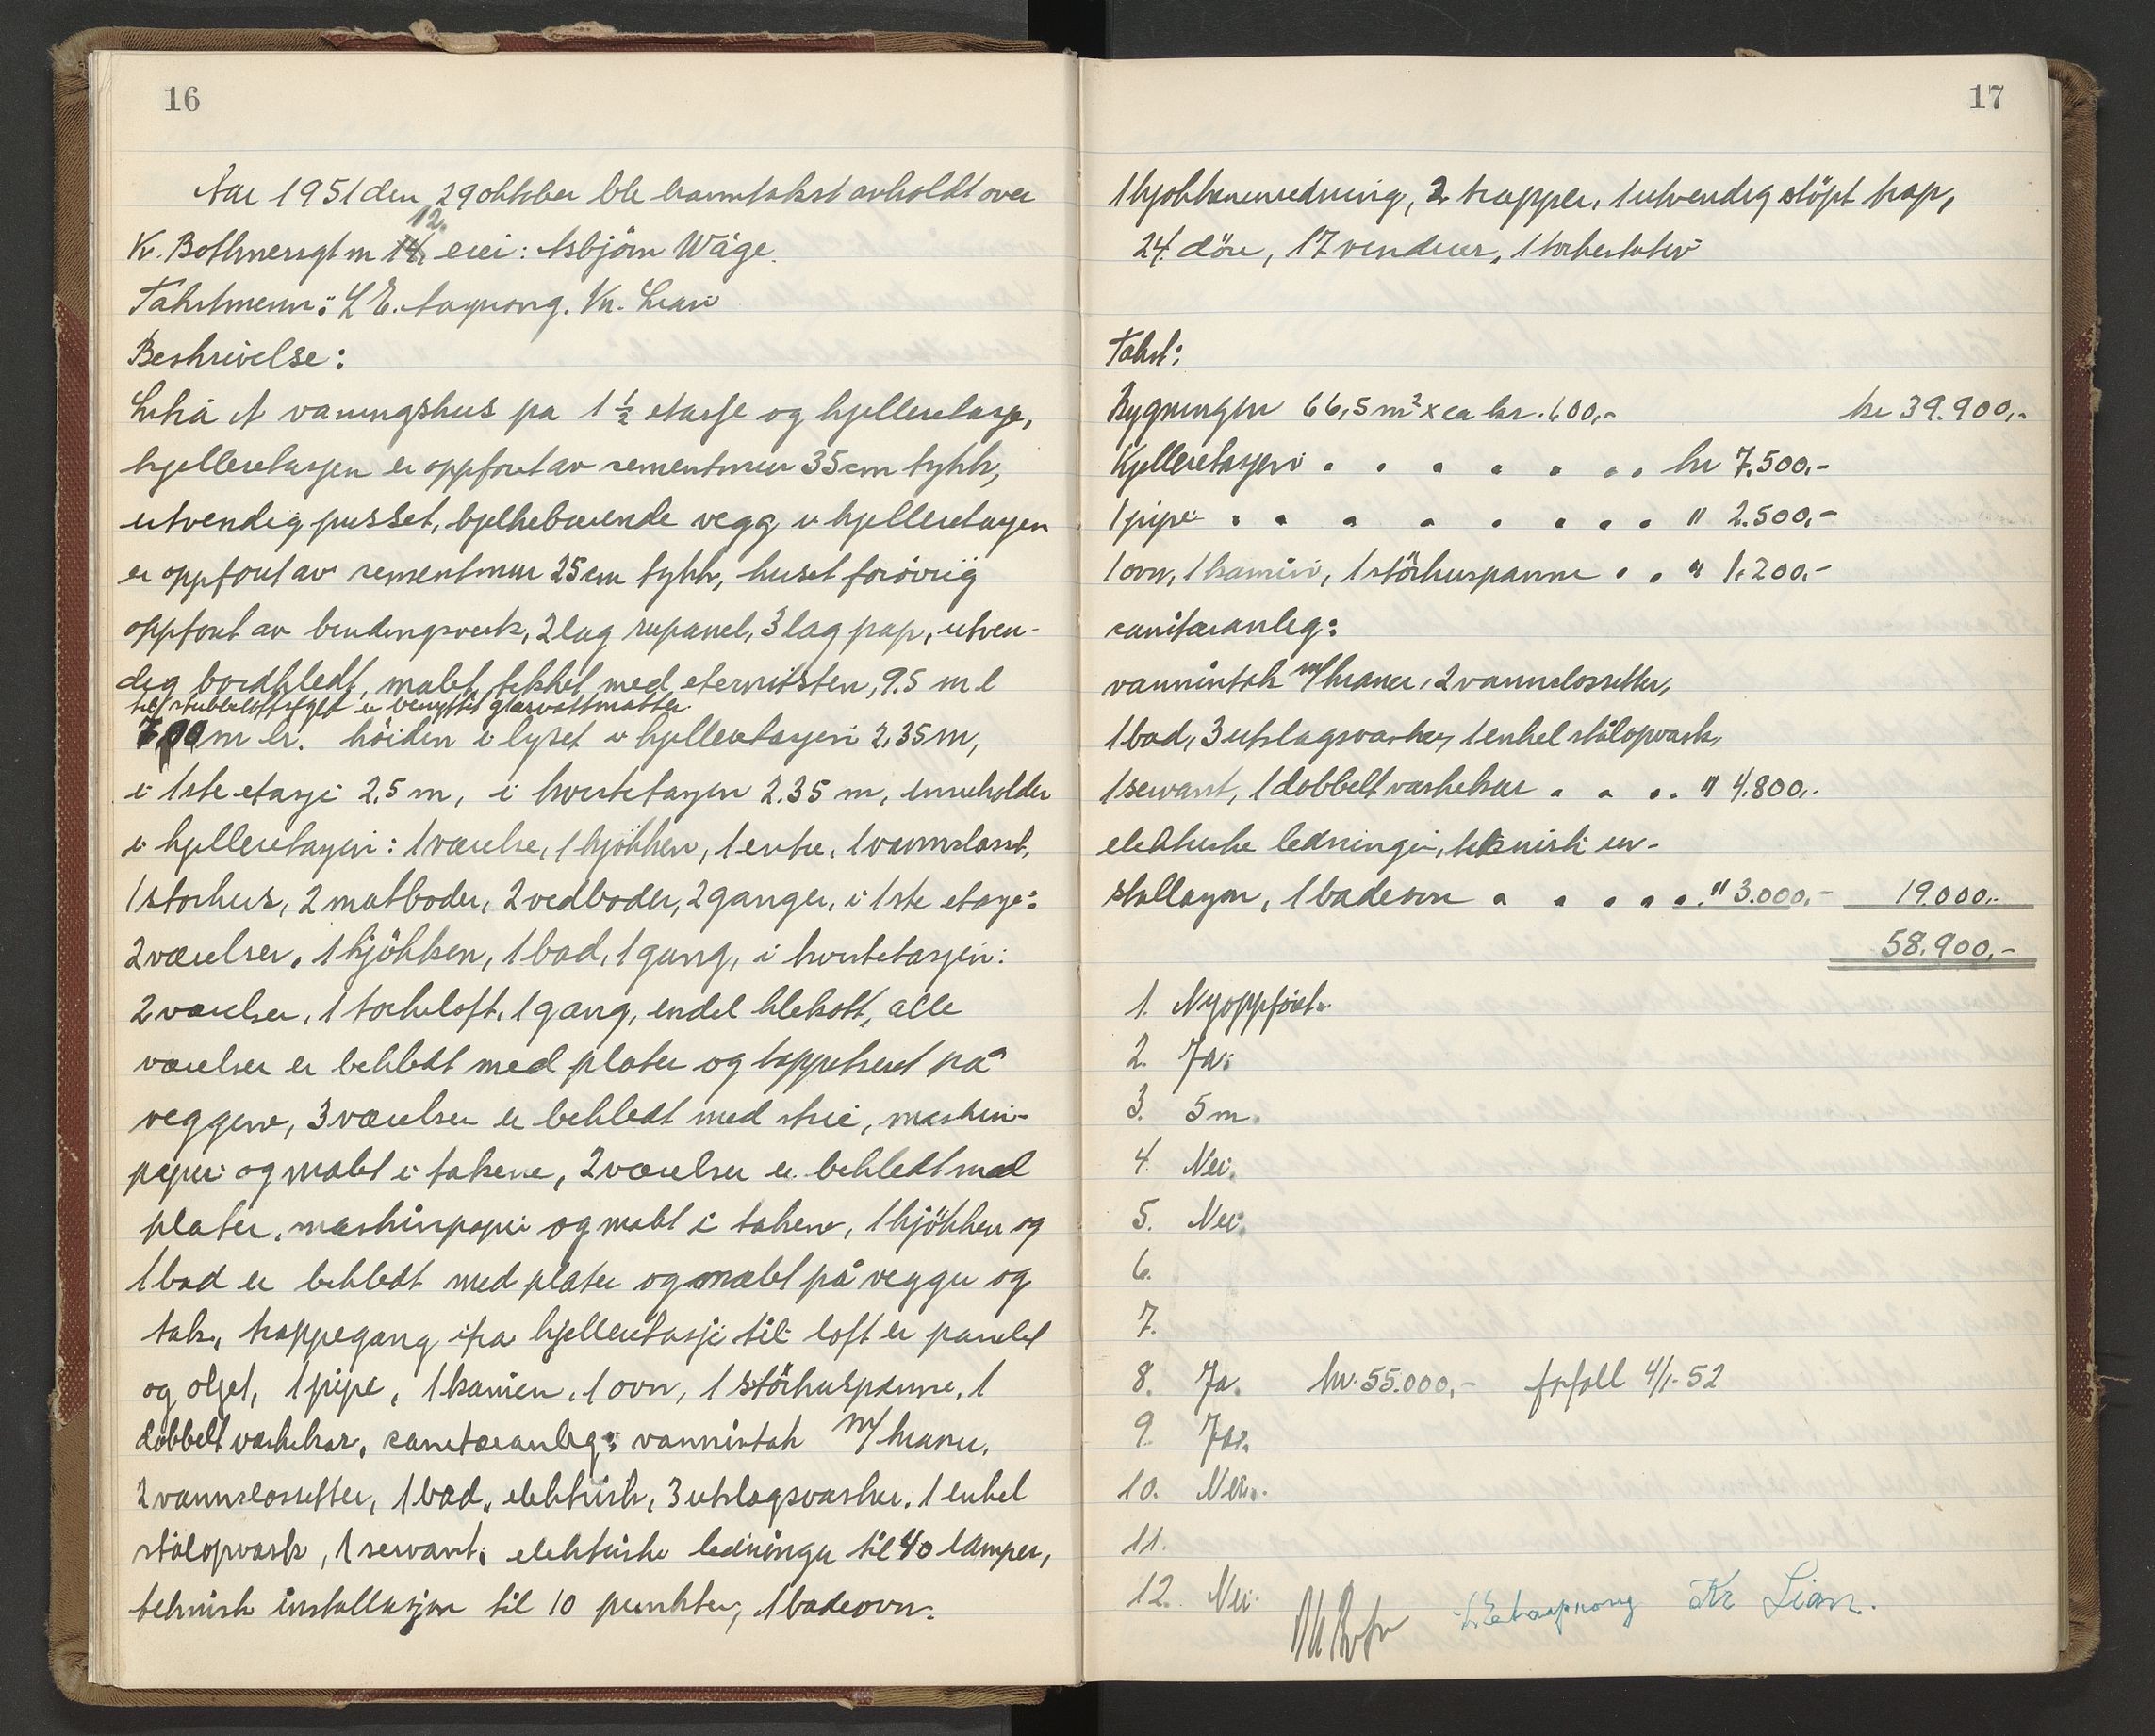 16
Aar 1951 den 29 oktober ble branntakst avholdt over
12.
Kr. Bothnersgt nr 14, eier: Asbjörn Wåge.
Takstmenn: Kr. Lian
Beskrivelse:
et vaningshus på 1 1/2 etasje og kjelleretasje,
kjelleretasjen er oppfört av sementmur 35 cm tykk,
utvendig pusset, bjelkebærende vegg i kjelleretasjen
er oppfört av sementmur 25 cm tykk, huset forövrig
oppfört av bindingsverk, 2 lag rupanel, 3 lag pap, utven-
dig bordkledt, malet, tekket med eternitsten, 9.5 m l
til stubeloftsfyld er benyttet glasvattmatter
7,00 m br. höiden i lyset i kjelleretasjen 2,35 m,
i 1ste etasje 2,5 m, i kvistetasjen 2.35 m, inneholder
i kjelleretasjen: 1 værelse, 1 kjökken, 1 entre, 1 vannclosset,
1 storhus, 2 matboder, 2 vedboder, 2 ganger, i 1ste etasje:
2 værelser, 1 kjökken, 1 bad, 1 gang, i kvistetasjen:
2 værelser, 1 törkeloft, 1 gang, endel klekott, alle
værelser er bekledt med plater og tappetsert på
veggene, 3 værelser er bekledt med strie, maskin-
papir og malet i takene, 2 værelser er bekledt med
plater, maskinpapir og malt i takene, 1 kjökken og
1 bad er bekledt med plater og malet på vegger og
tak, trappegang ifra kjelleretasje til loft er panelet
og oljet, 1 pipe, 1 kamien, 1 ovn, 1 störhuspanne, 1
dobbelt vaskekar, sanitæranleg: vanninntak m/ kraner,
2 vannclossetter, 1 bad, elektrisk, 3 utslagsvasker, 1 enkel
stålopvask, 1 servant, elektriske ledninger til 40 lamper,
teknisk installasjon til 10 punkter, 1 badeovn.
17
1 kjökkeninnredning, 2 trapper, 1 utvendig stöpt trap,
24 döre, 17 vinduer, 1 törkestativ
Takst:
Bygningen 66,5 m² x ca kr. 600,- kr 39.900,-
Kjelleretasjen . . . . . . . kr 7.500,-
1 pipe . . . . . . . . " 2.500,-
1 ovn, 1 kamin, 1 störhuspanne . . " 1.200,-
sanitæranleg:
vanninntak m/ kraner, 2 vannclossetter,
1 bad, 3 utslagsvasker, 1 enkel stålopvask,
1 servant, 1 dobbelt vaskekar . . . . " 4.800,-
elektriske ledninger, teknisk in-
stallasjon, 1 badeovn . . . . . " 3.000,- 19.000,-
58.900,-
1. Nyoppfört.
2. Ja.
3. 5 m.
4. Nei.
5. Nei.
6.
7.
8. Ja. kr. 55.000,- forfall 4/1-52
9. Ja.
10. Nei.
11.
12. Nei.
Kr Lian.